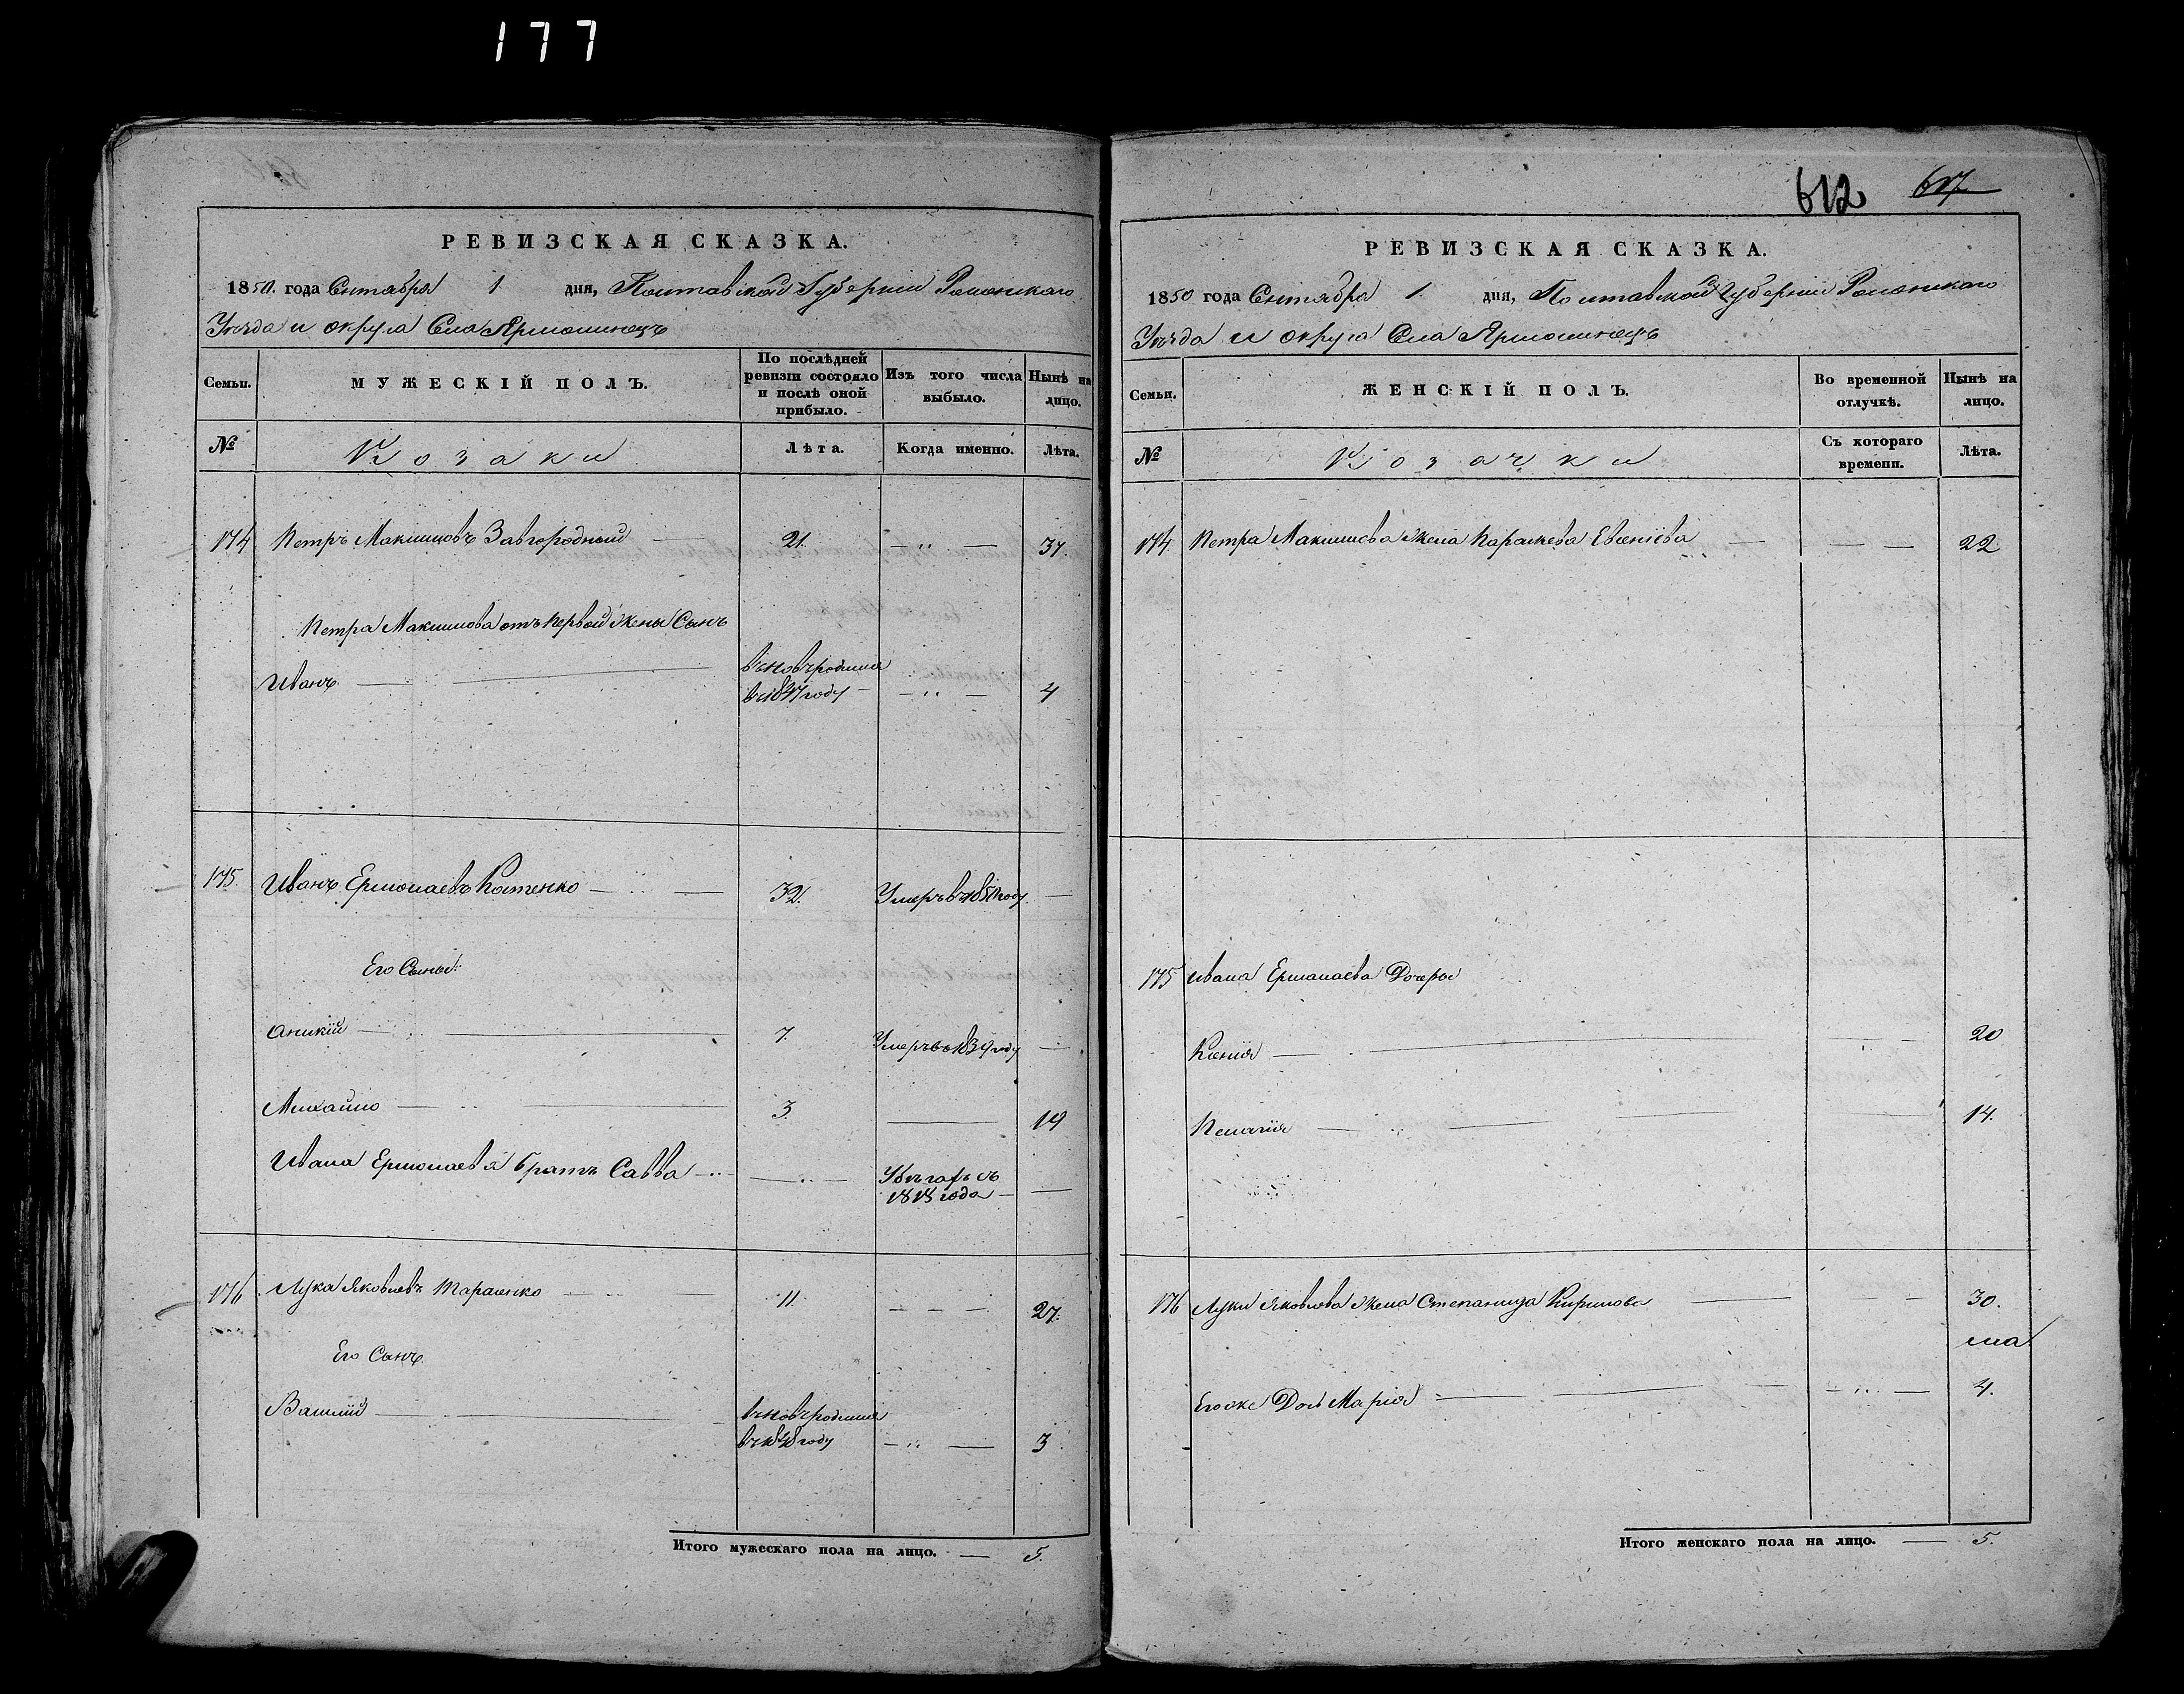 177
РЕВИЗСКАЯ СКАЗКА.
1850. года Сентября 1 дня, Полтавской Губерніи Роменскаго
Уѣзда и округа Села Ярмолинецъ
Семьи.
МУЖЕСКІЙ ПОЛЪ.
По послѣдней ревизіи состояло и послѣ оной прибыло.
Изъ того числа выбыло.
Нынѣ на лицо.
№
Козаки
Лѣта.
Когда именно.
Лѣта.
174 Петръ Максимовъ Завгородный — 21. — „ — 37.
Петра Максимова отъ первой жены Сынъ
Иванъ — вновъ родился
въ 1847 году — — „ — 4
175 Иванъ Ермолаевъ Костенко — 32. Умеръ въ 1850 году —
Его Сыны:
Аникій — 7. Умеръ въ 1839 году —
Михайло — 3. — 19
Ивана Ермолаева братъ Савва — — Убѣгахъ съ
1813 года — —
176 Лука Яковлевъ Тарасенко — 11. — — — 27.
Его Сынъ
Василій — вновъ родился
въ 1848 году — „ — 3
Итого мужескаго пола на лицо. — 5.
612 617
РЕВИЗСКАЯ СКАЗКА.
1850 года Сентября 1. дня, Полтавской Губерніи Роменскаго
Уѣзда и округа Села Ярмолинецъ
Семьи.
ЖЕНСКІЙ ПОЛЪ.
Во временной отлучкѣ.
Нынѣ на лицо.
№
Козачки
Съ котораго времени.
Лѣта.
174. Петра Максимова жена Параскева Евсеніева — — — 22
175 Ивана Ермолаева Дочеры
Ксенія — — 20
Пелагія — — 14.
176 Луки Яковлева жена Степанида Кирилова — — 30.
Егоже Дочь Марія — — „ — 4.
Итого женскаго пола на лицо. — 5.